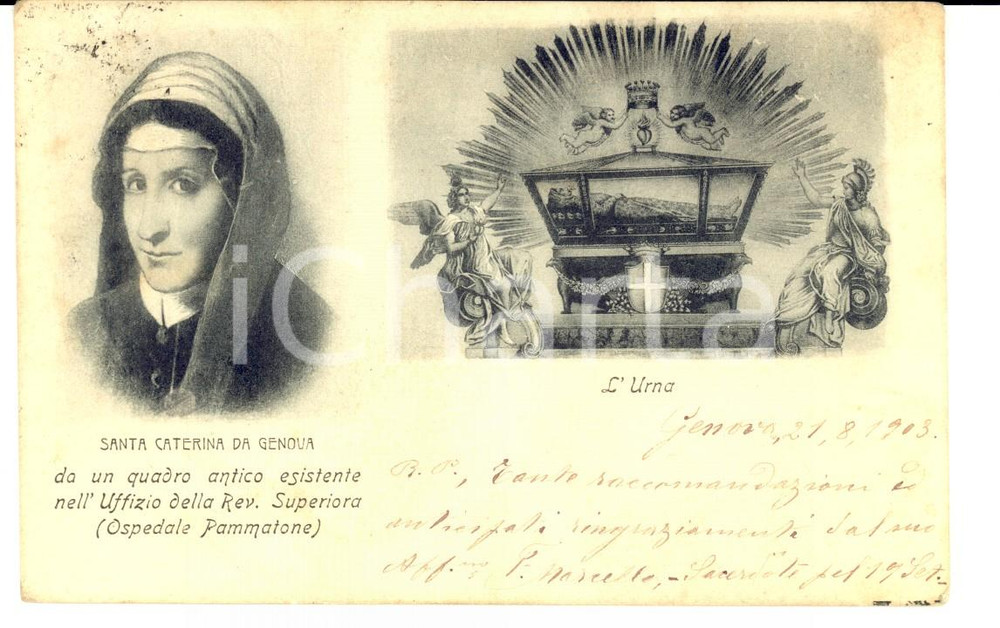 SANTA CATERINA DA GENOVA
da un quadro antico esistente
nell' Uffizio della Rev. Superiora
(Ospedale Pammatone)
L' Urna
Genova, 21, 8, 1903.
R. P., Tante raccomandazioni ed
anticipati ringraziamenti dal suo
Aff.mo F. Marcello, - Sacerdote pel 19 Set.
iCharta